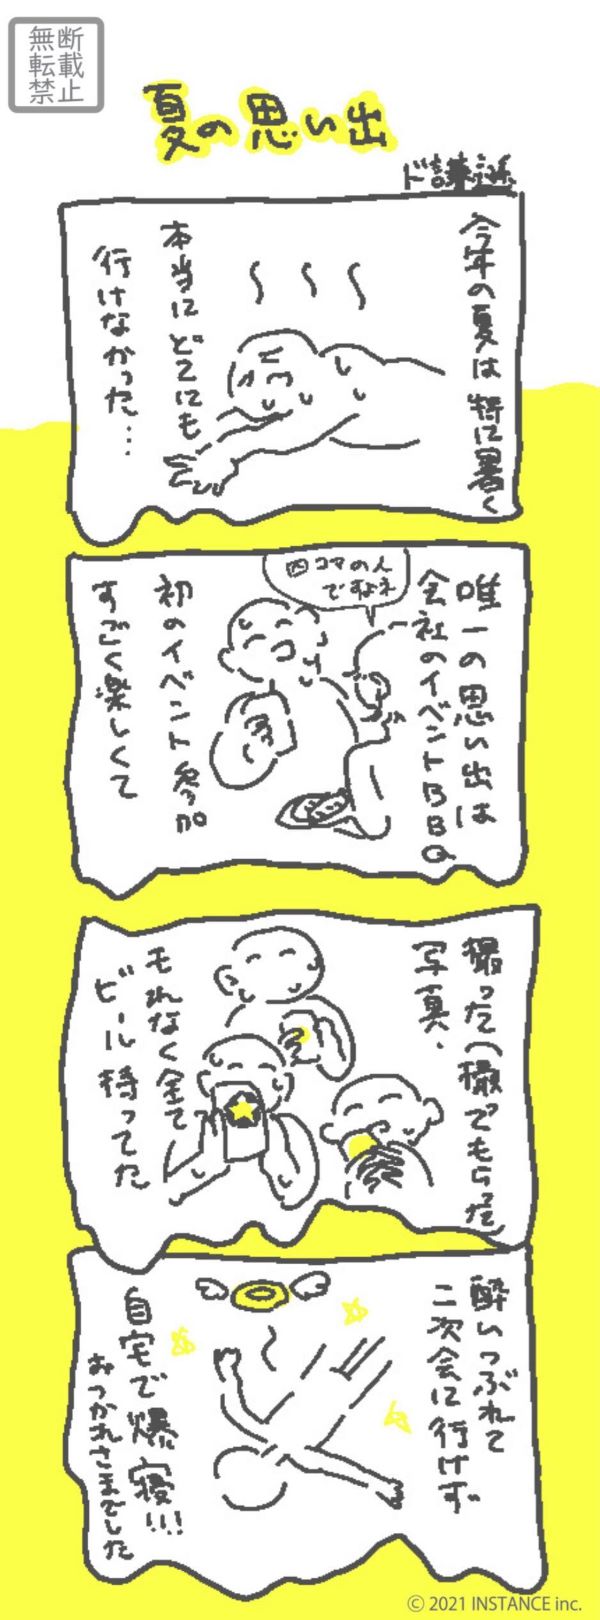 無断転載禁止
夏の思い出
ド謙遜
今年の夏は特に暑く
本当にどこにも
行けなかった…
四コマの人
ですよネ
唯一の思い出は
会社のイベントBBQ
初のイベント参加
すごく楽しくて
撮った(撮ってもらった)
写真、
もれなく全て
ビール持ってた
酔いつぶれて
二次会に行けず
自宅で爆寝!!!
おつかれさまでした
© 2021 INSTANCE inc.